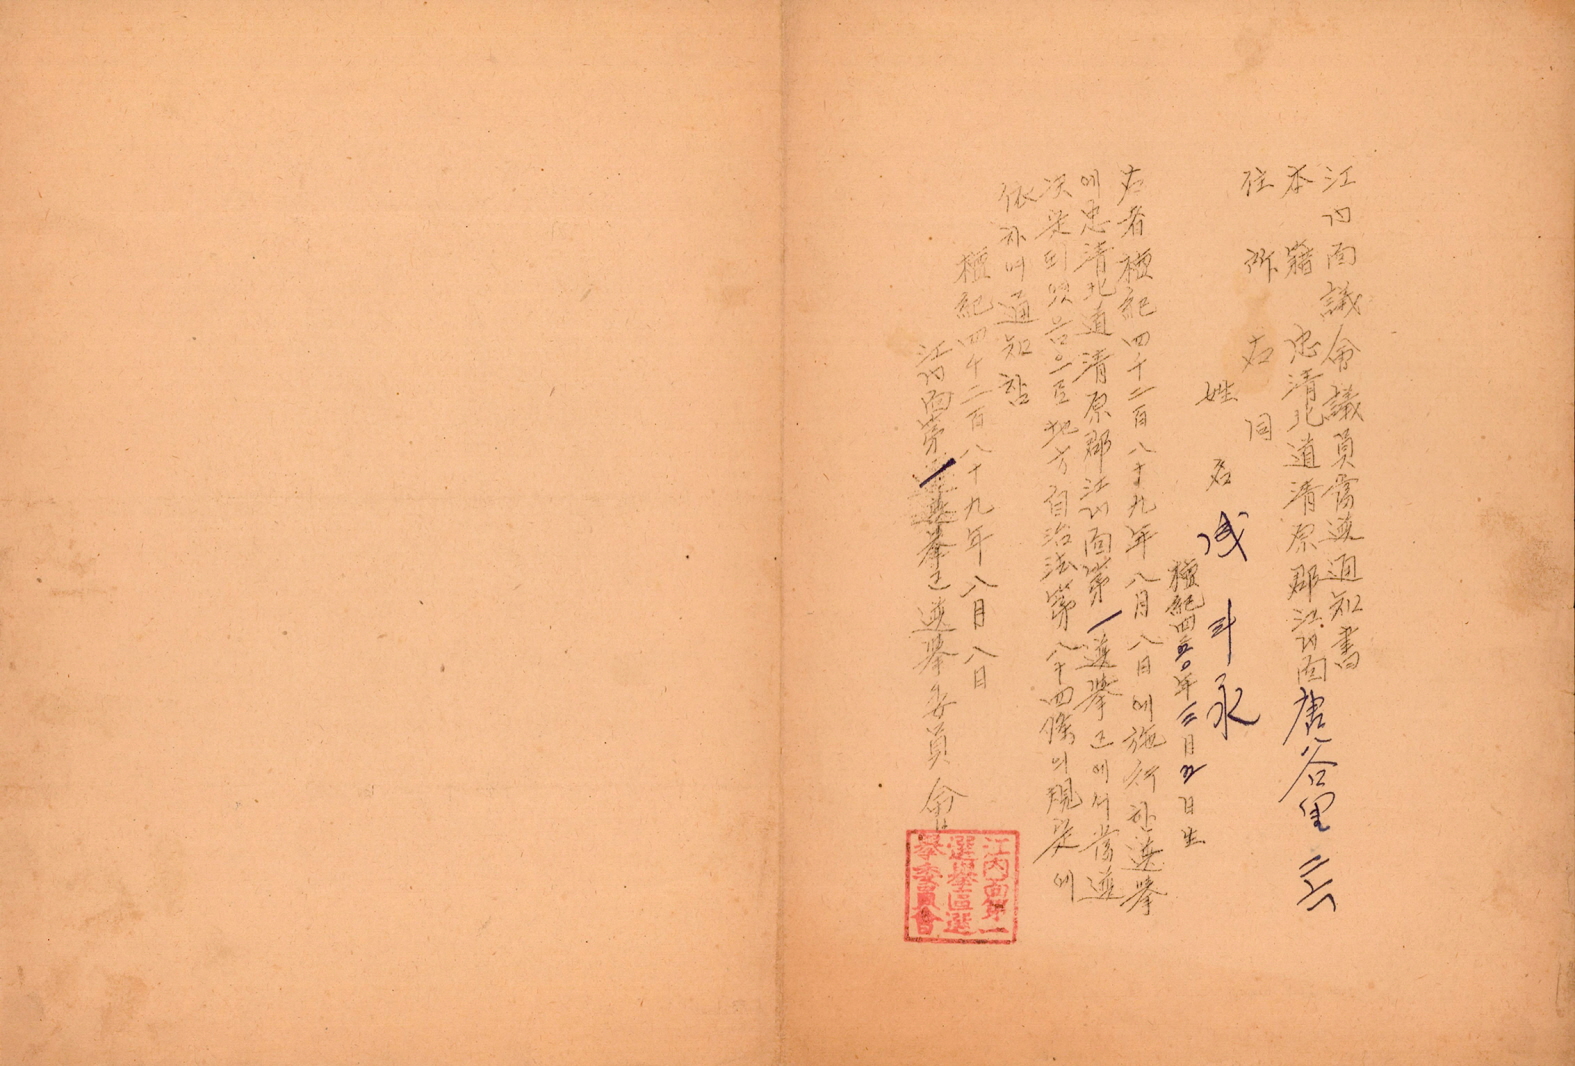 江內面議會議員當選通知書
本籍 忠清北道清原郡江內面唐谷里三六
住所 右同
姓名 成斗永
檀紀四二五〇年三月五日生
右者檀紀四千二百八十九年八月八日에施行한選擧
에忠清北道清原郡江內面第一選擧区에서當選
決定되였음으로地方自治法第八十四條의規定에
依하여通知함
檀紀四千二百八十九年八月八日
江內面第一選擧区選擧委員會
江內面第一
選擧區選
擧委員會